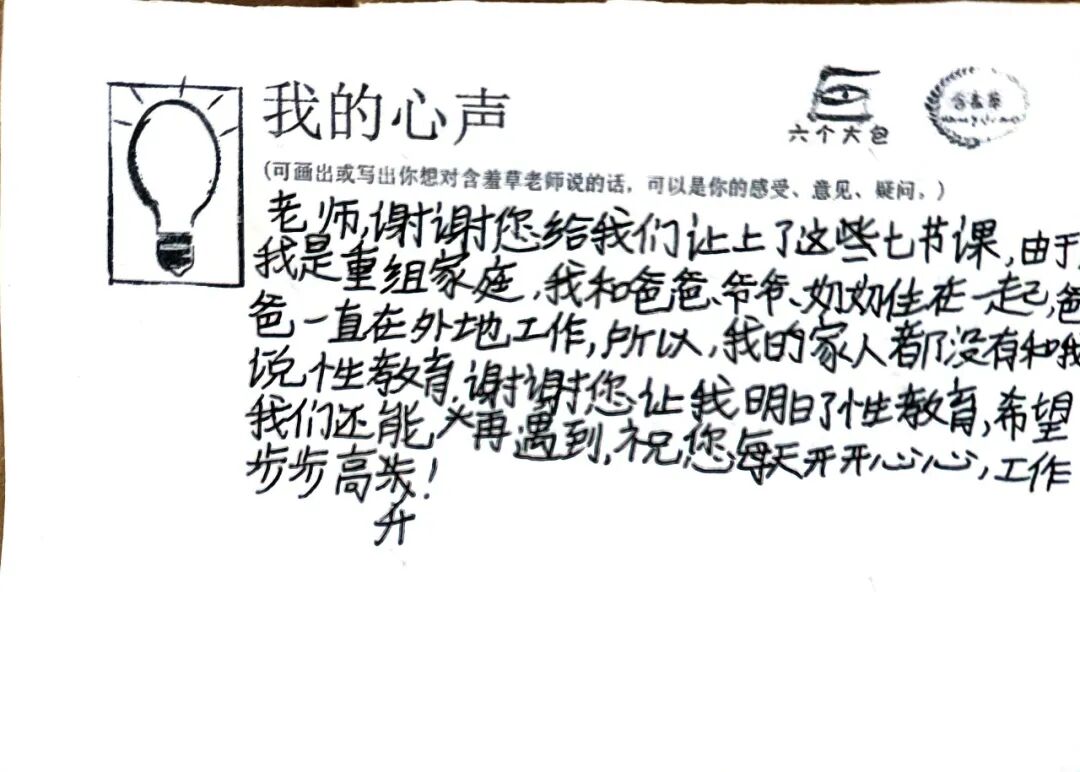 我的心声
六个大包
含羞草
(可画出或写出你想对含羞草老师说的话，可以是你的感受、意见、疑问。)
老师,谢谢您给我们让上了这些七节课,由于
我是重组家庭,我和爸爸、爷爷、奶奶住在一起,爸
爸一直在外地工作,所以,我的家人都没有和我
说性教育.谢谢您让我明白了性教育,希望
我们还能再遇到,祝您每天开开心心,工作
步步高升!